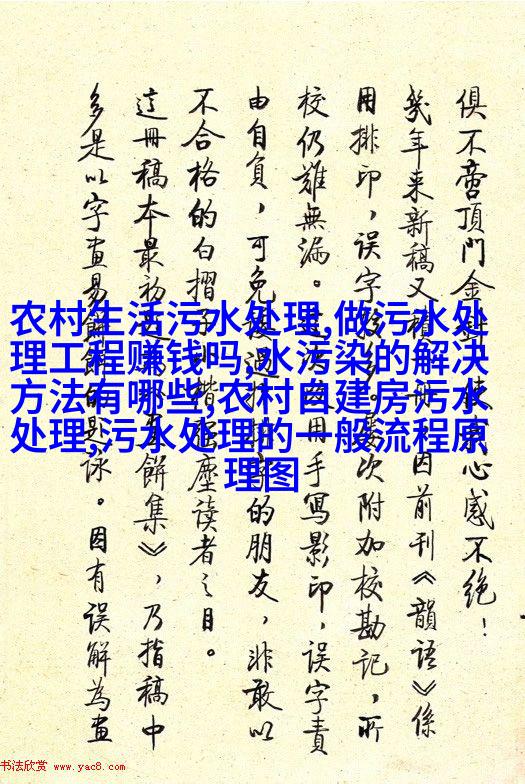 农村生活污水处理,做污水处
理工程赚钱吗,水污染的解决
方法有哪些,农村自建房污水
处理,污水处理的一般流程原
理图
俱不啻頂門金心感不绝！
幾年来新稿又積因前刊《韻語》係
用排印，误字次附加校勘记，所
校仍難無漏。用手寫影印，误字責
由自負，可免的朋友，非敢以
不合格的白摺子楷塵读者之目。
這冊稿本最初餅集》，乃指稿中
多是以字畫易餅的詠。因有误解為畫
书法欣赏 www.yac8.com